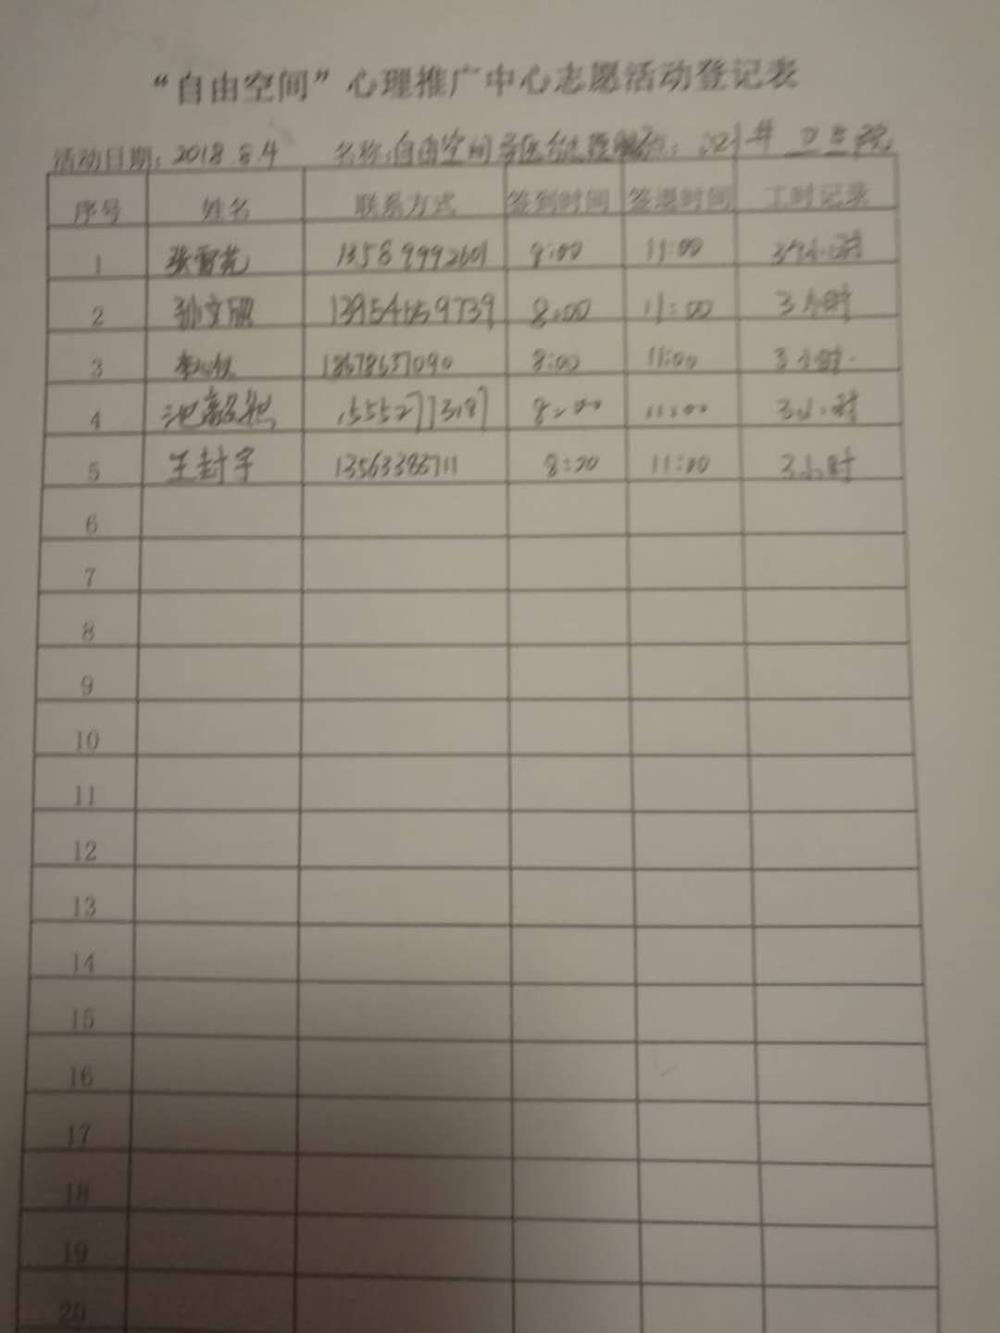 “自由空间”心理推广中心志愿活动登记表
活动日期: 2018.8.4 名称:自由空间 卫生院
序号 姓名 联系方式 签到时间 签退时间 工时记录
1 张雪芫 13589992601 8:00 11:00 3个小时
2 孙文 8:00 11:00 3小时
3 李 18678637090 8:00 11:00 3小时.
4 池毅 15552773187 8:00 11:00 3小时
5 王封宇 13563386711 8:00 11:00 3小时
6
7
8
9
10
11
12
13
14
15
16
17
18
19
20